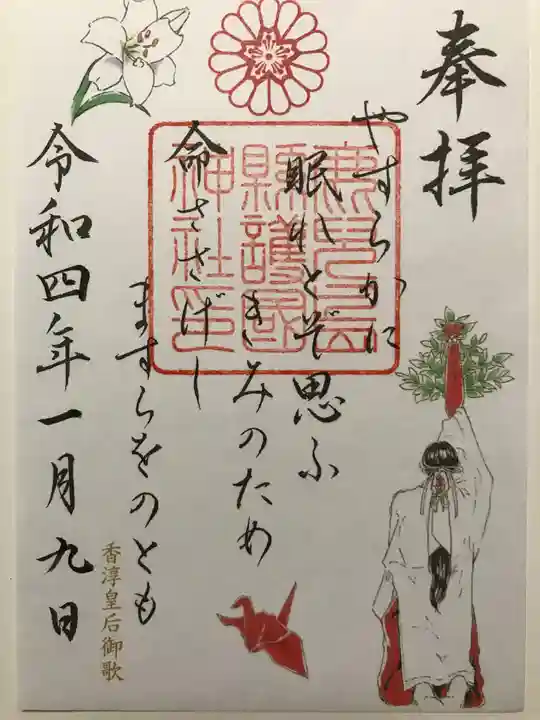 奉拝
やすらかに
眠れとぞ思ふ
きみのため
命ささげし
ますらをのとも
香淳皇后御歌
令和四年一月九日
鹿児島
縣護國
神社印